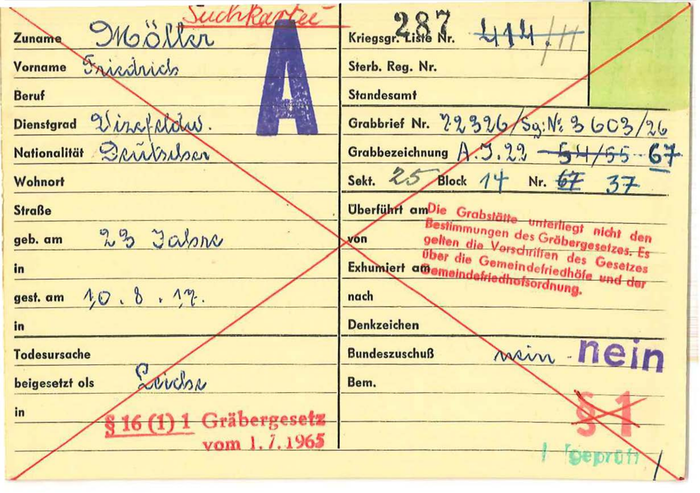 Suchkartei
Zuname Möller
Vorname Friedrich
Beruf
Dienstgrad Vizefeldw.
Nationalität Deutscher
Wohnort
Straße
geb. am 23 Jahre
in
gest. am 10.8.17.
in
Todesursache
beigesetzt als Leiche
in
§ 16 (1) 1 Gräbergesetz
vom 1.7.1965
A
287
Kriegsgr. Liste Nr. 414/III
Sterb. Reg. Nr.
Standesamt
Grabbrief Nr. 22326/Sg: Nr. 3603/26
Grabbezeichnung A.I.22 54/55 67
Sekt. 25 Block 14 Nr. 67 37
Überführt am
von
Exhumiert am
nach
Denkzeichen
Die Grabstätte unterliegt nicht den
Bestimmungen des Gräbergesetzes. Es
gelten die Vorschriften des Gesetzes
über die Gemeindefriedhöfe und der
Gemeindefriedhofsordnung.
Bundeszuschuß nein - nein
Bem.
§ 1
geprüft